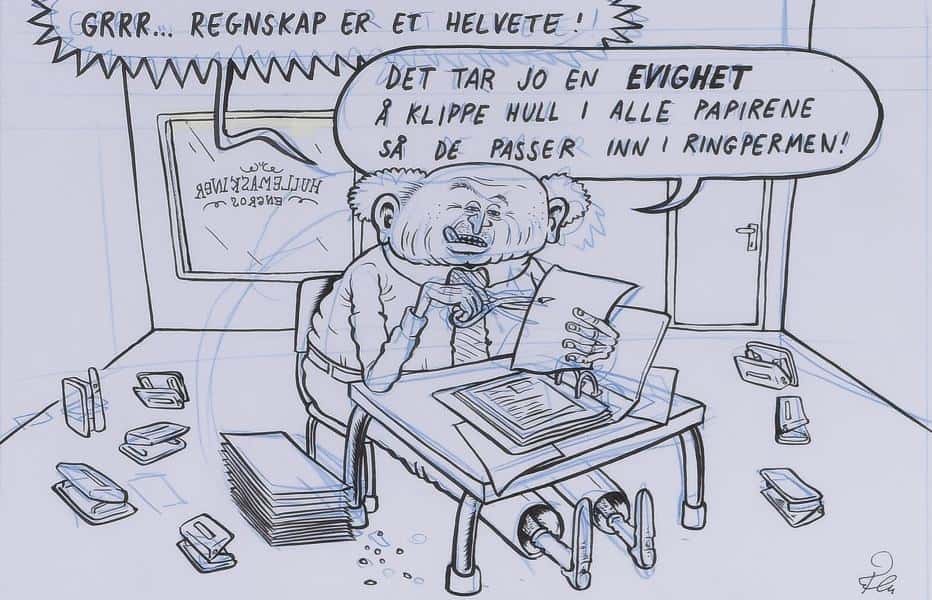 GRRR... REGNSKAP ER ET HELVETE!
DET TAR JO EN EVIGHET
Å KLIPPE HULL I ALLE PAPIRENE
SÅ DE PASSER INN I RINGPERMEN!
HULLEMASKINER
ENGROS